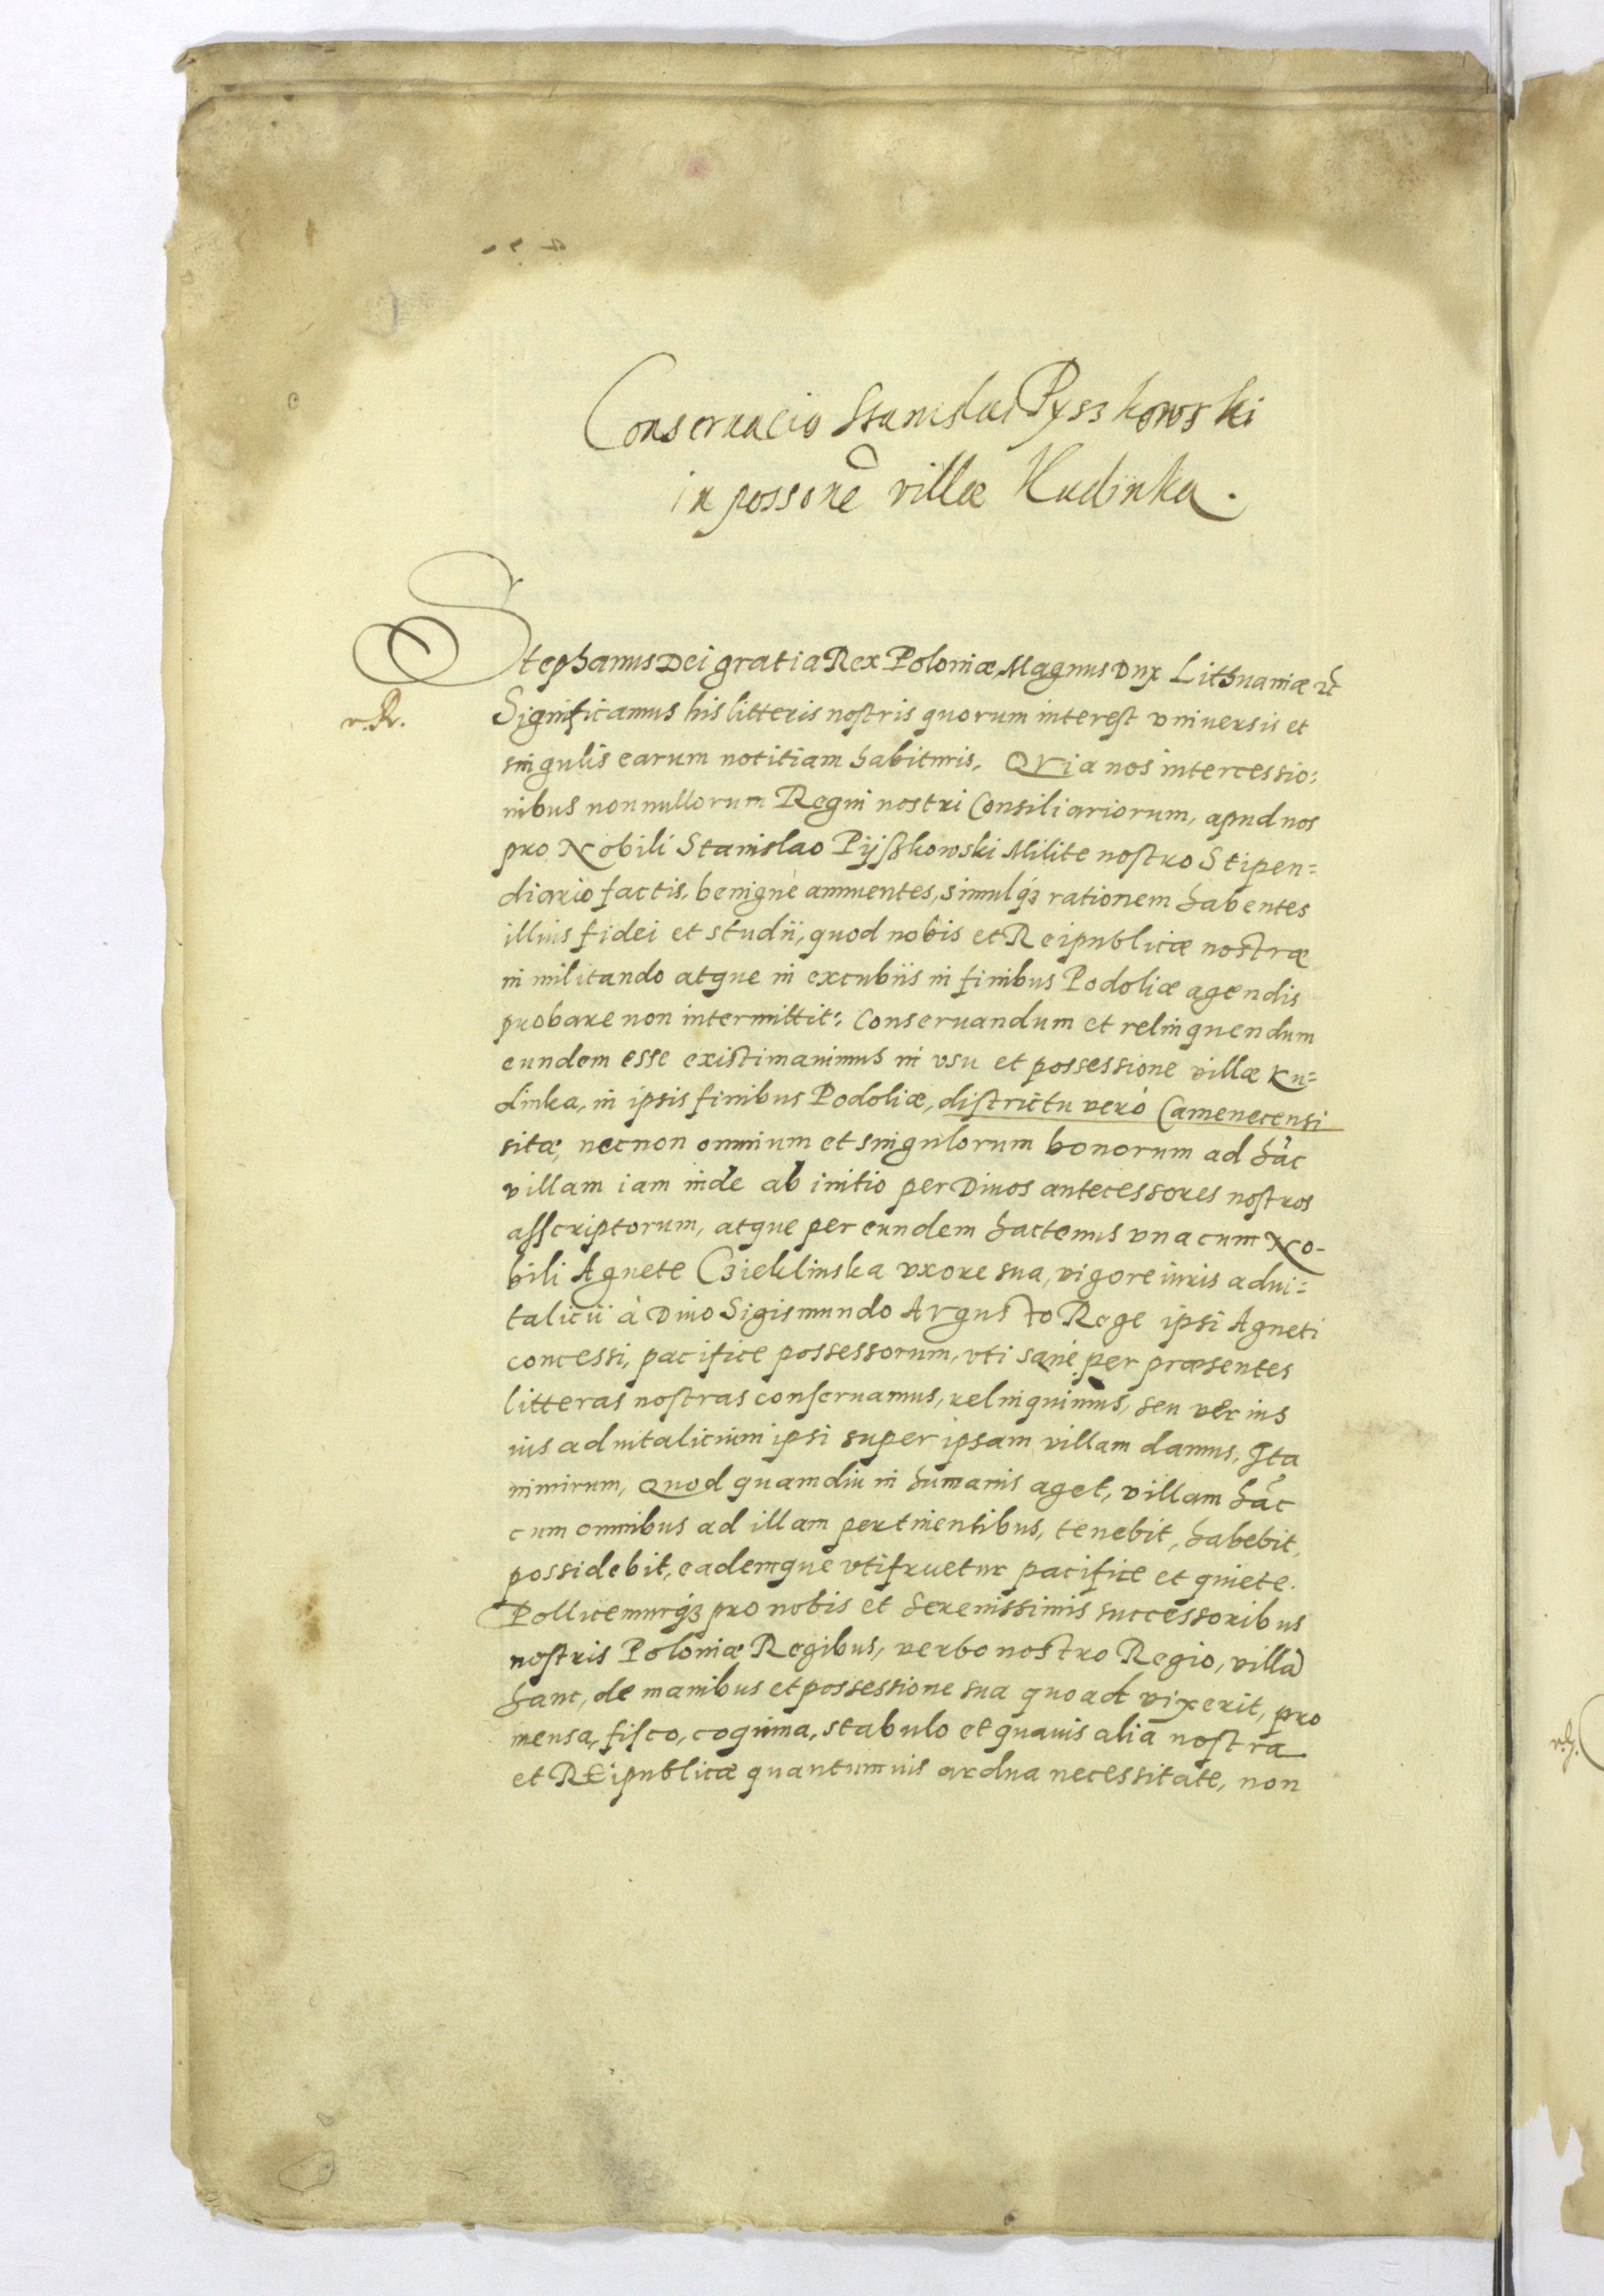 Conseruacio Stanislai Pyszkowski
in possone villæ Kudinka.
Stephanus Dei gratia Rex Poloniæ, Magnus Dux Lithuaniæ etc
Significamus his litteris nostris quorum interest vniuersis et
singulis earum notitiam habituris. Quia nos intercessio:
nibus nonnullorum Regni nostri Consiliariorum, apud nos
pro Nobili Stanislao Pijßkowski Milite nostro Stipen=
diario factis, benignè annuentes, simulq3 rationem habentes
illius fidei et studii, quod nobis et Reipublicæ nostræ
in militando atque in excubiis in finibus Podoliæ agendis
probare non intermittit: Conseruandum et relinquendum
eundem esse existimauimus in vsu et possessione villæ Ku=
dinka, in ipsis finibus Podoliæ, districtu verò Camenecensi
sitæ, necnon omnium et singulorum bonorum ad hãc
villam iam inde ab initio per Diuos antecessores nostros
asscriptorum, atque per eundem hactenus vna cum No-
bili Agnete Czieklinska vxore sua, vigore iuris adui=
talicii à Diuo Sigismundo Augusto Rege ipsi Agneti
concessi, pacifice possessorum, vti sanè per præsentes
litteras nostras conseruamus, relinquimus, seu verius
ius aduitalicium ipsi super ipsam villam damus, Ita
nimirum, Quod quamdiu in humanis aget, villam hãc
cum omnibus ad illam pertinentibus, tenebit, habebit,
possidebit, eademque vtifruetur pacifice et quiete.
Pollicemurq3 pro nobis et Serenissimis successoribus
nostris Poloniæ Regibus, verbo nostro Regio, villã
hanc, de manibus et possessione sua quoad vixerit, pro
mensa, fisco, coquina, stabulo et quauis alia nostra
et Reipublicæ quantumuis ardua necessitate, non